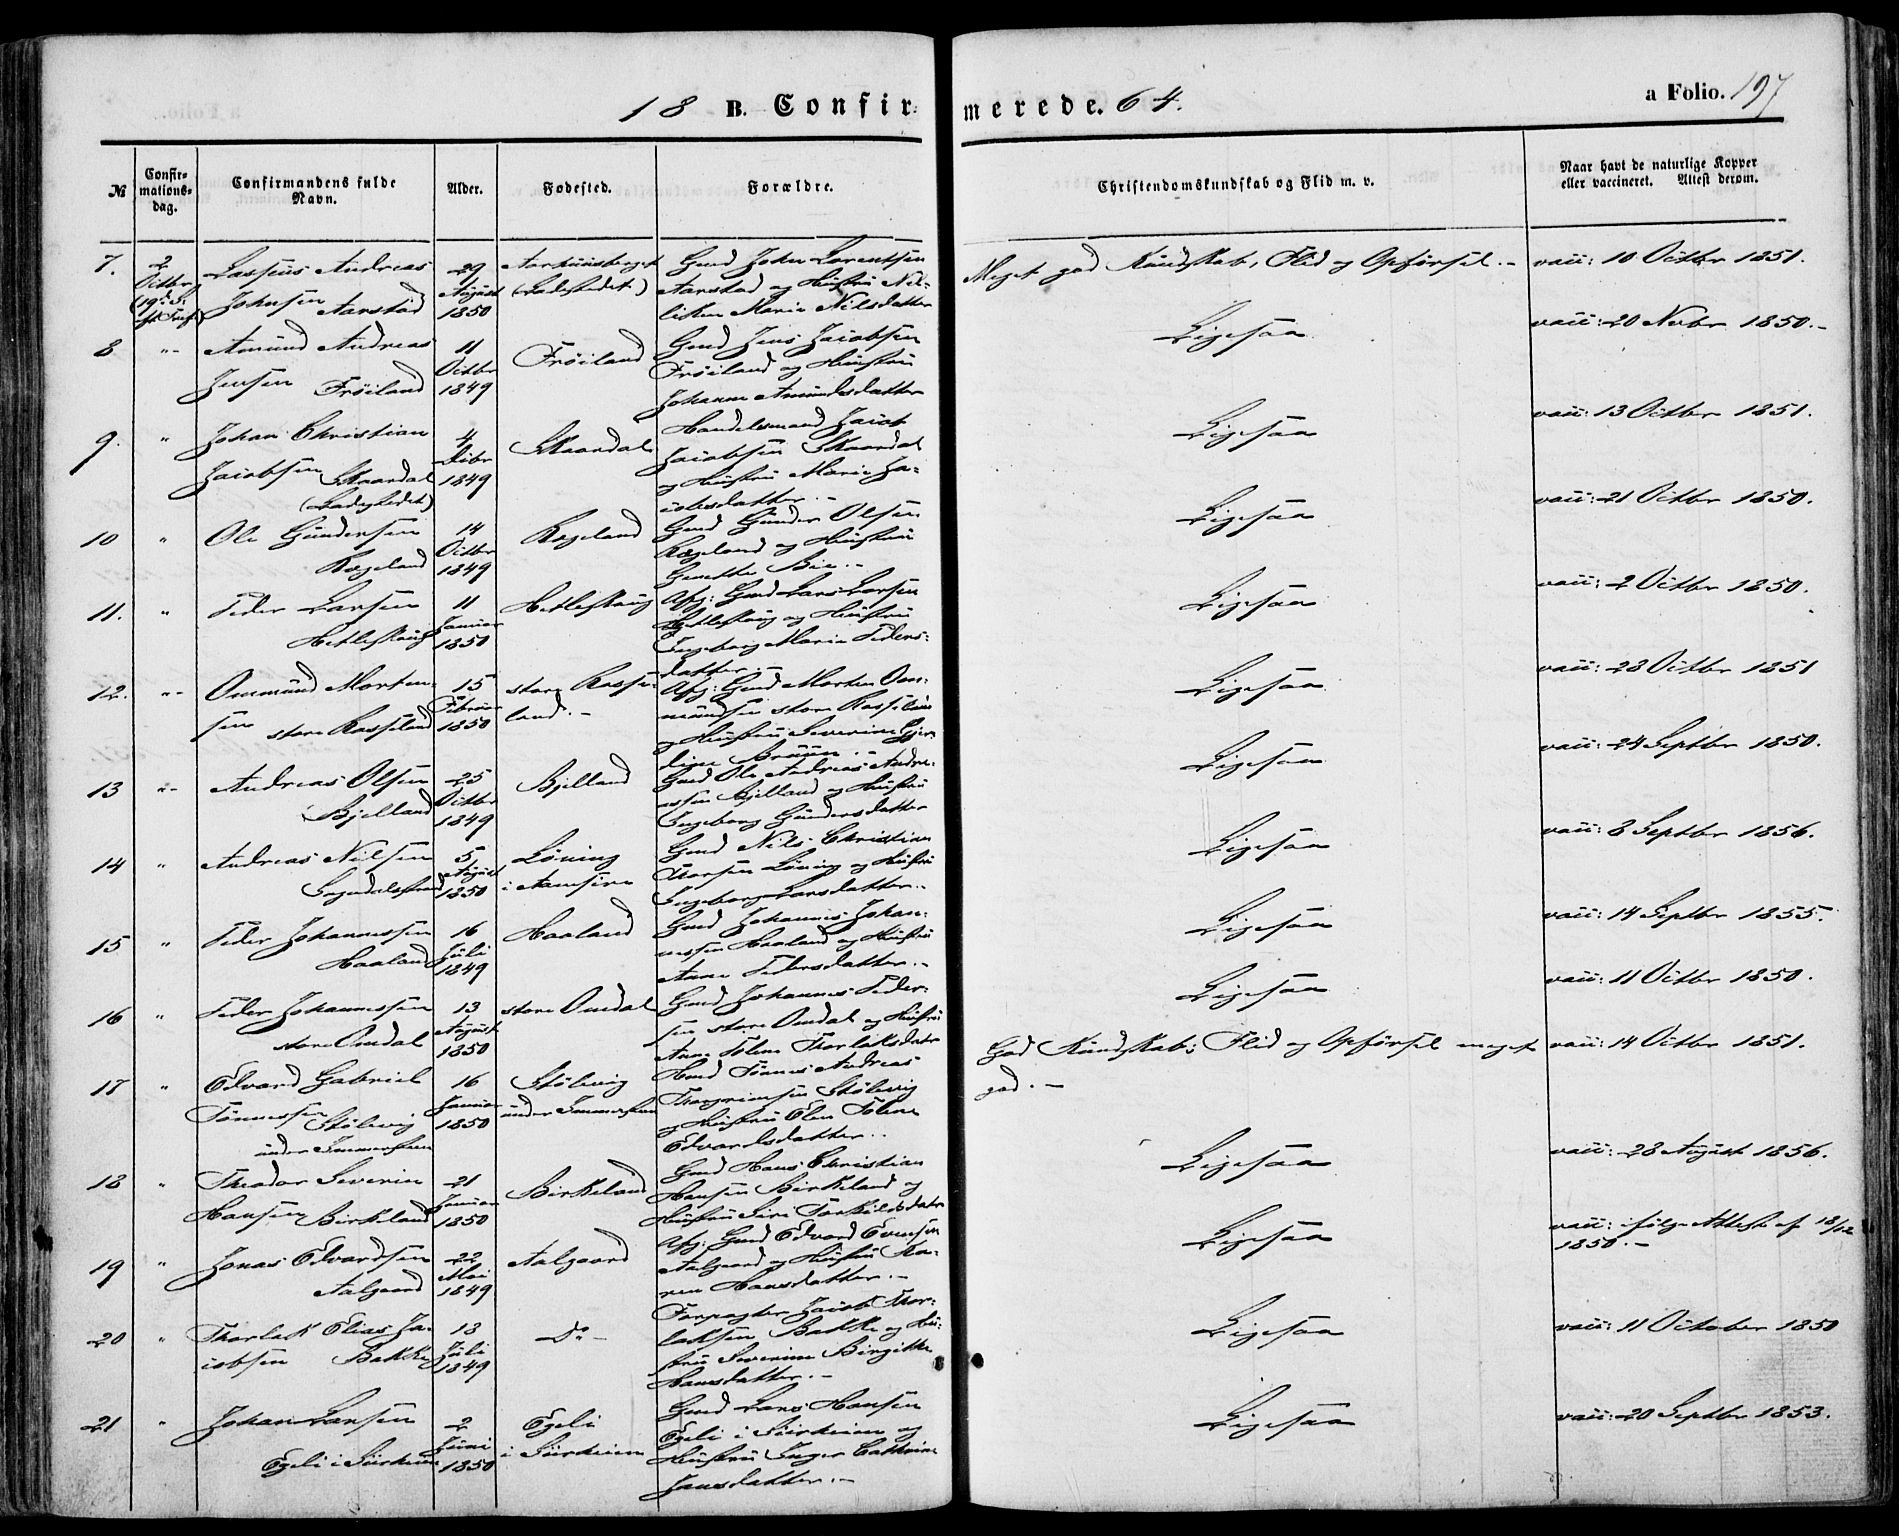 18 B. Confirmerede. 64. a Folio. 197
№ Confirmations-dag. Confirmandens fulde Navn. Alder. Fødested. Forældre. Christendomskundskab og Flid m. v. Naar havt de naturlige Kopper eller vaccineret. Attest derom.
7. 2 Octbr (19 S. ft. Tref) Lassens Andreas Johnsen Aarstad 29 August 1850 (Ladestedet) Gmd John Larentsen Aarstad og Hustru Nilisken Marie Nilsdatter Meget god Kundskab, Flid og Opførsel.- vacc: 10 Octbr 1851.
8 "- Amund Andreas Jensen Frøiland 11 Octbr 1849 Frøiland Gmd Jens Jacobsen Frøiland og Hustru Johanne Amundsdatter Ligesaa vacc: 20 Novbr 1850.-
9. " Johan Christian Jacobsen Skaardal (Ladestedet) 4 Decbr 1849 Skaardal Handelsmand Jacob Jacobsen Skaardal og Hustru Marie Jacobsdatter.- Ligesaa vacc: 13 Octbr 1851.
10 " Ole Gundersen Rægeland 14 Octbr 1849 Rægeland Gmd Gunder Olsen Rægeland og Hustru Genette Bie.- Ligesaa vacc: 21 Octbr 1850.
11. " Peder Larsen Hetleskoug 11 Januar 1850 Hetleskoug Afg: Gmd Lars Larsen Hetleskoug og Hustru Ingeborg Marie Pedersdatter.- Ligesaa vacc: 2 Octbr 1850.
12. "- Ommund Mortensen store Rosseland 15 Februar 1850 store Rosseland.- Afg: Gmd Morten Ommundsen store Rosseland og Hustru Severine Gjerdine Bruun.- Ligesaa vacc: 28 Octbr 1851
13 "- Andreas Olsen Bjelland 25 Octbr 1849 Bjelland Gmd Ole Andreas Andreassen Bjelland og Hustru Ingeborg Gundersdatter Ligesaa vacc: 24 Septbr 1850.
14 " Andreas Nilsen Sogndalsstrand 5 August 1850 Løning i Aamsire Gmd Nils Christian Thorsen Løning og Hustru Ingeborg Larsdatter.- Ligesaa vacc: 8 Septbr 1856.
15 " Peder Johannessen Haaland 16 Juli 1849 Haaland Gmd Johannes Johannessen Haaland og Hustru Anne Pedersdatter.- Ligesaa vacc: 14 Septbr 1855.
16 " Peder Johannessen store Omdal 13 August 1850 store Omdal Gmd Johannes Pedersen store Omdal og Hustru Anne Tolene Thorlaksdatr Ligesaa vacc: 11 Octbr 1850.
17 " Edvard Gabriel Tønnessen Stølevig under Immerstein 16 Januar 1850 Stølevig under Immerstein Hmd Tønnes Andreas Thorgrimsen Stølevig og Hustru Elen Tolene Edvardsdatter.. God Kundskab; Flid og Opførsel meget god.- vacc: 14 Octbr 1851.
18 " Theodor Severin Hansen Birkeland 21 Januar 1850 Birkeland Gmd Hans Christian Hansen Birkeland og Hustru Siri Torkildsdatr Ligesaa vacc: 28 August 1856.
19 " Jonas Edvardsen Aalgaard 22 Mai 1849 Aalgaard Afg: Gmd Edvard Evensen Aalgaard og Hustru Karen Hansdatter.- Ligesaa vacc: ifølge Attest af 18/12 1850.-
20 " Thorlak Elias Jacobsen Bakke 13 Juli 1849 Do- Forpagter Jacob Thorlaksen Bakke og Hustru Severine Birgitte Hansdatter.- Ligesaa vacc: 11 October 1850
21 " Johan Larsen Egeli i Siirheien 2 Juni 1850 Egeli i Siirheien Gmd Lars Hansen Egeli i Siirheien og Hustru Inger Cathrine Jansdatter.- Ligesaa vacc: 20 Septbr 1853.